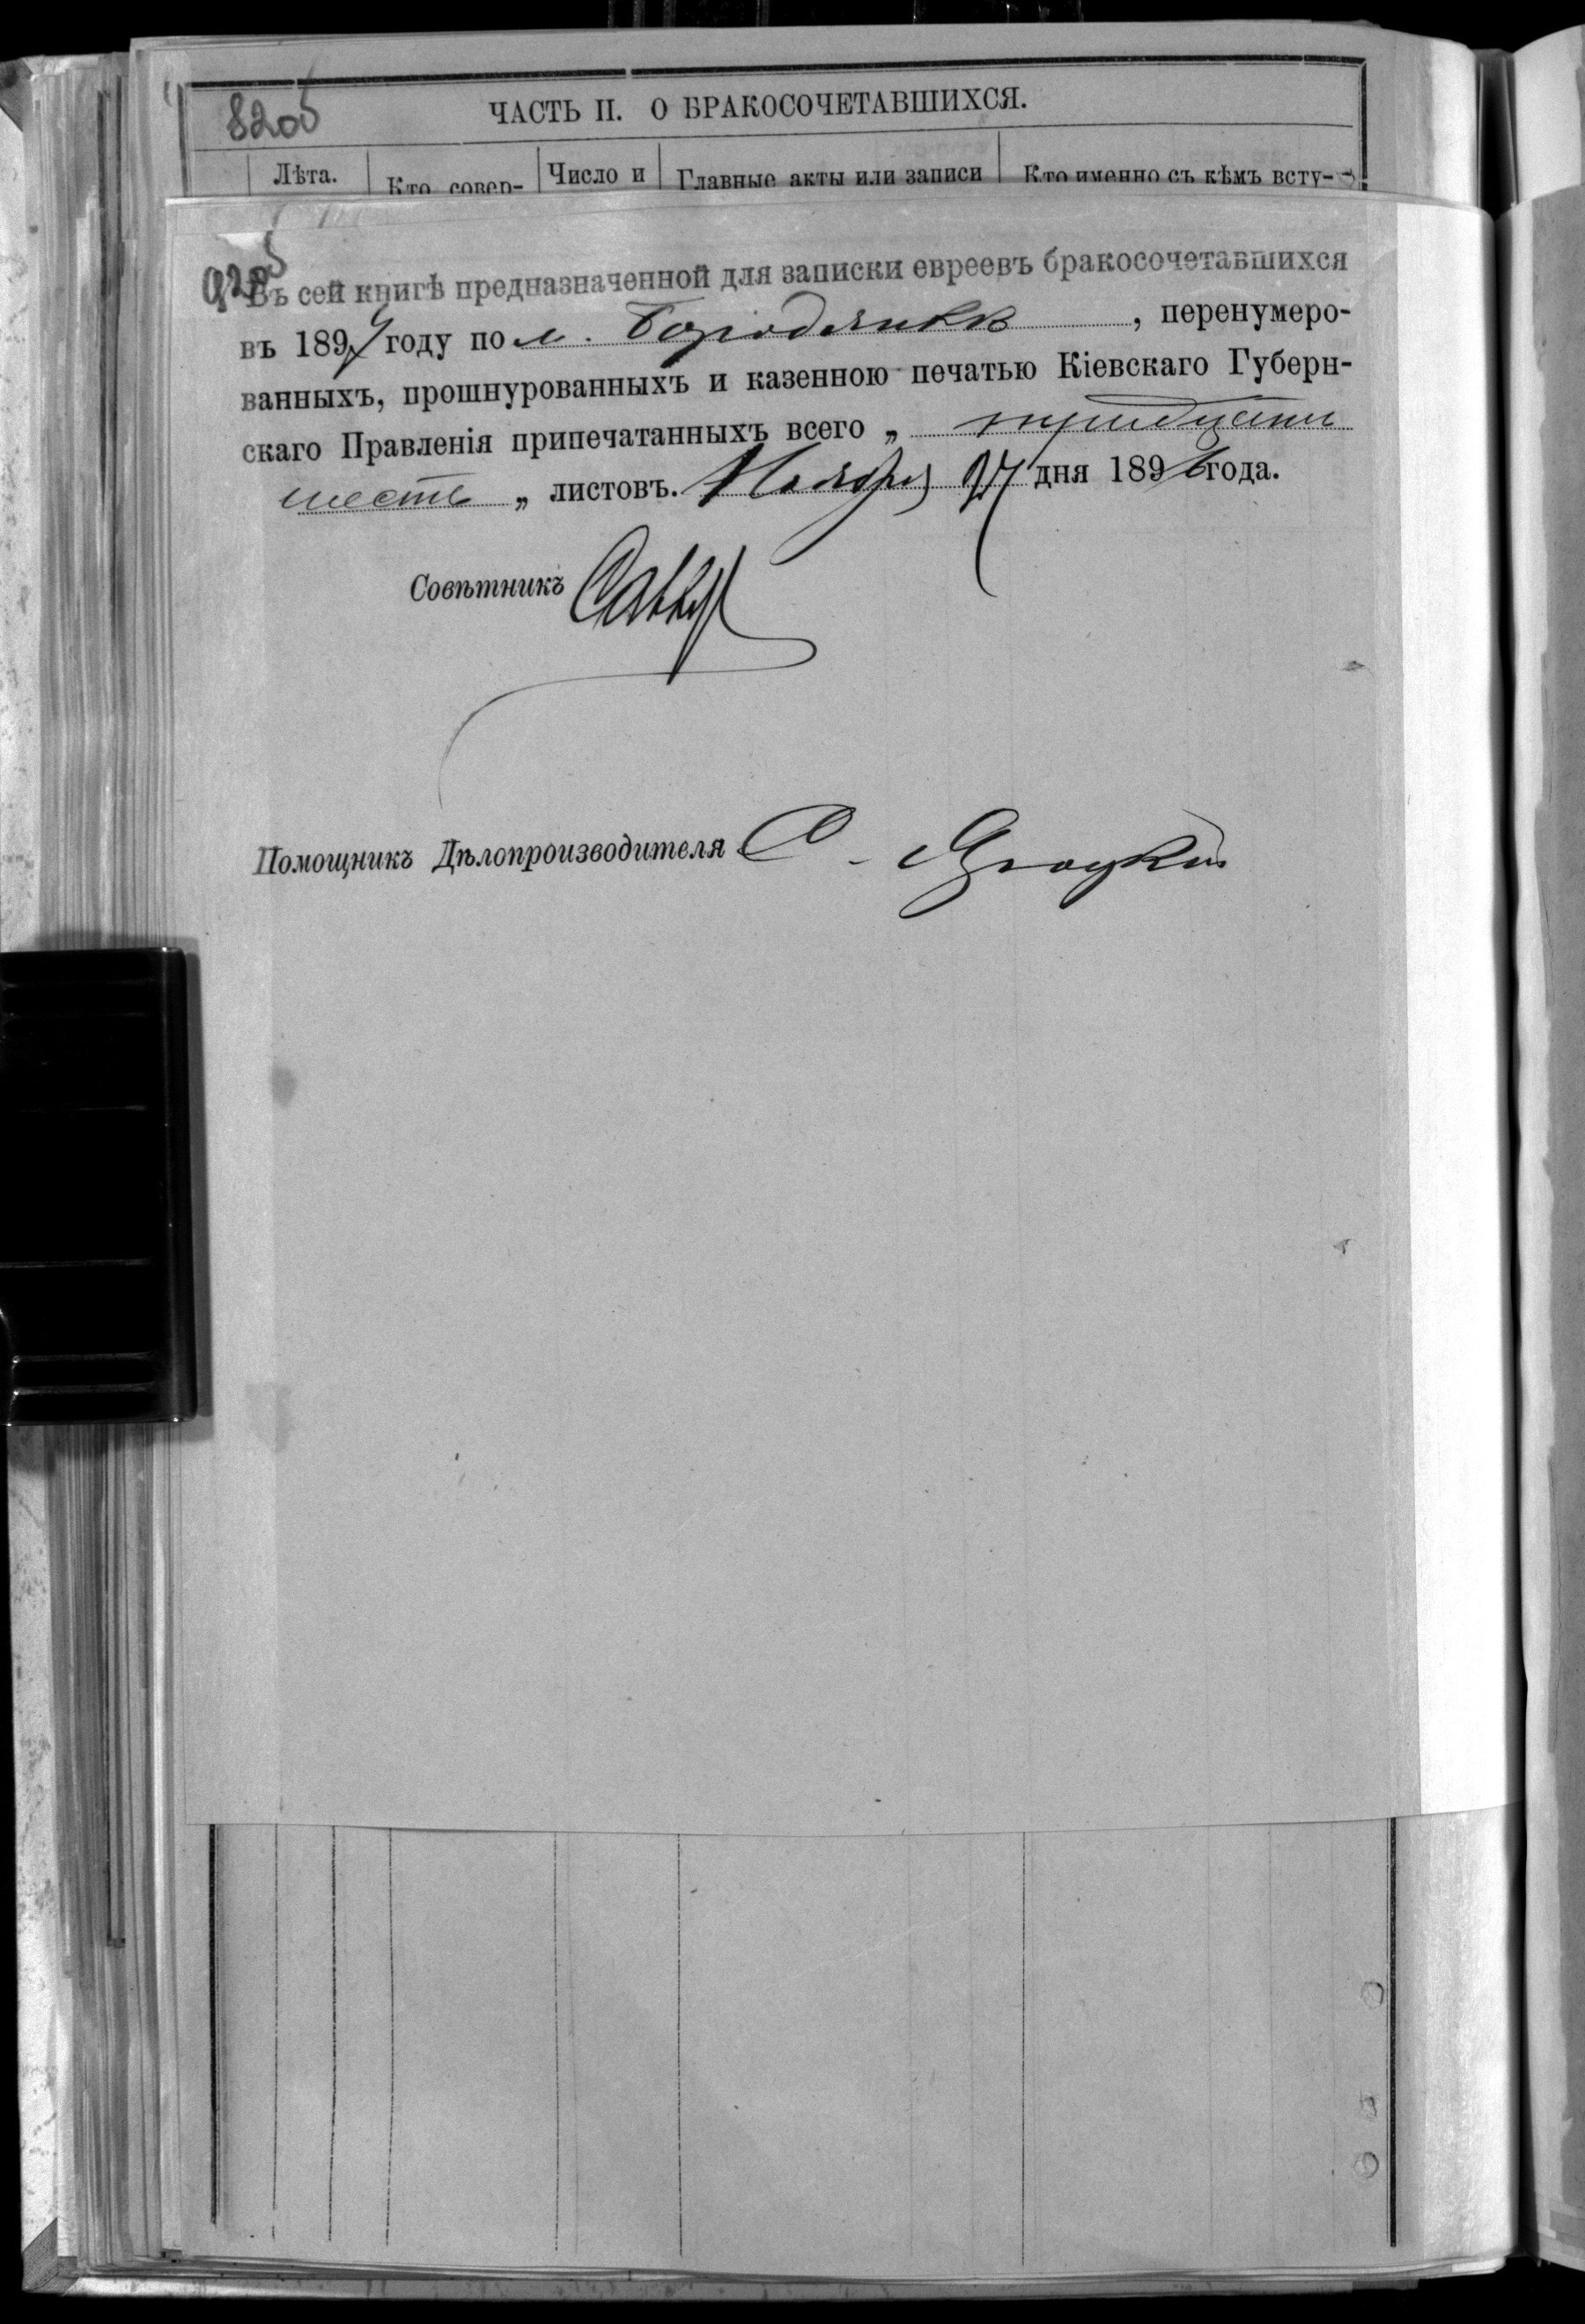 820об
ЧАСТЬ II. О БРАКОСОЧЕТАВШИХСЯ.
Лѣта. Кто совер- Число и Главные акты или записи Кто именно съ кѣмъ всту-
Въ сей книгѣ предназначенной для записки евреевъ бракосочетавшихся
въ 1897 году по м. Бородянкѣ, перенумеро-
ванныхъ, прошнурованныхъ и казенною печатью Кіевскаго Губерн-
скаго Правленія припечатанныхъ всего „ тридцать
шесть „ листовъ. Ноября 27 дня 1896 года.
Совѣтникъ
Помощникъ Дѣлопроизводителя